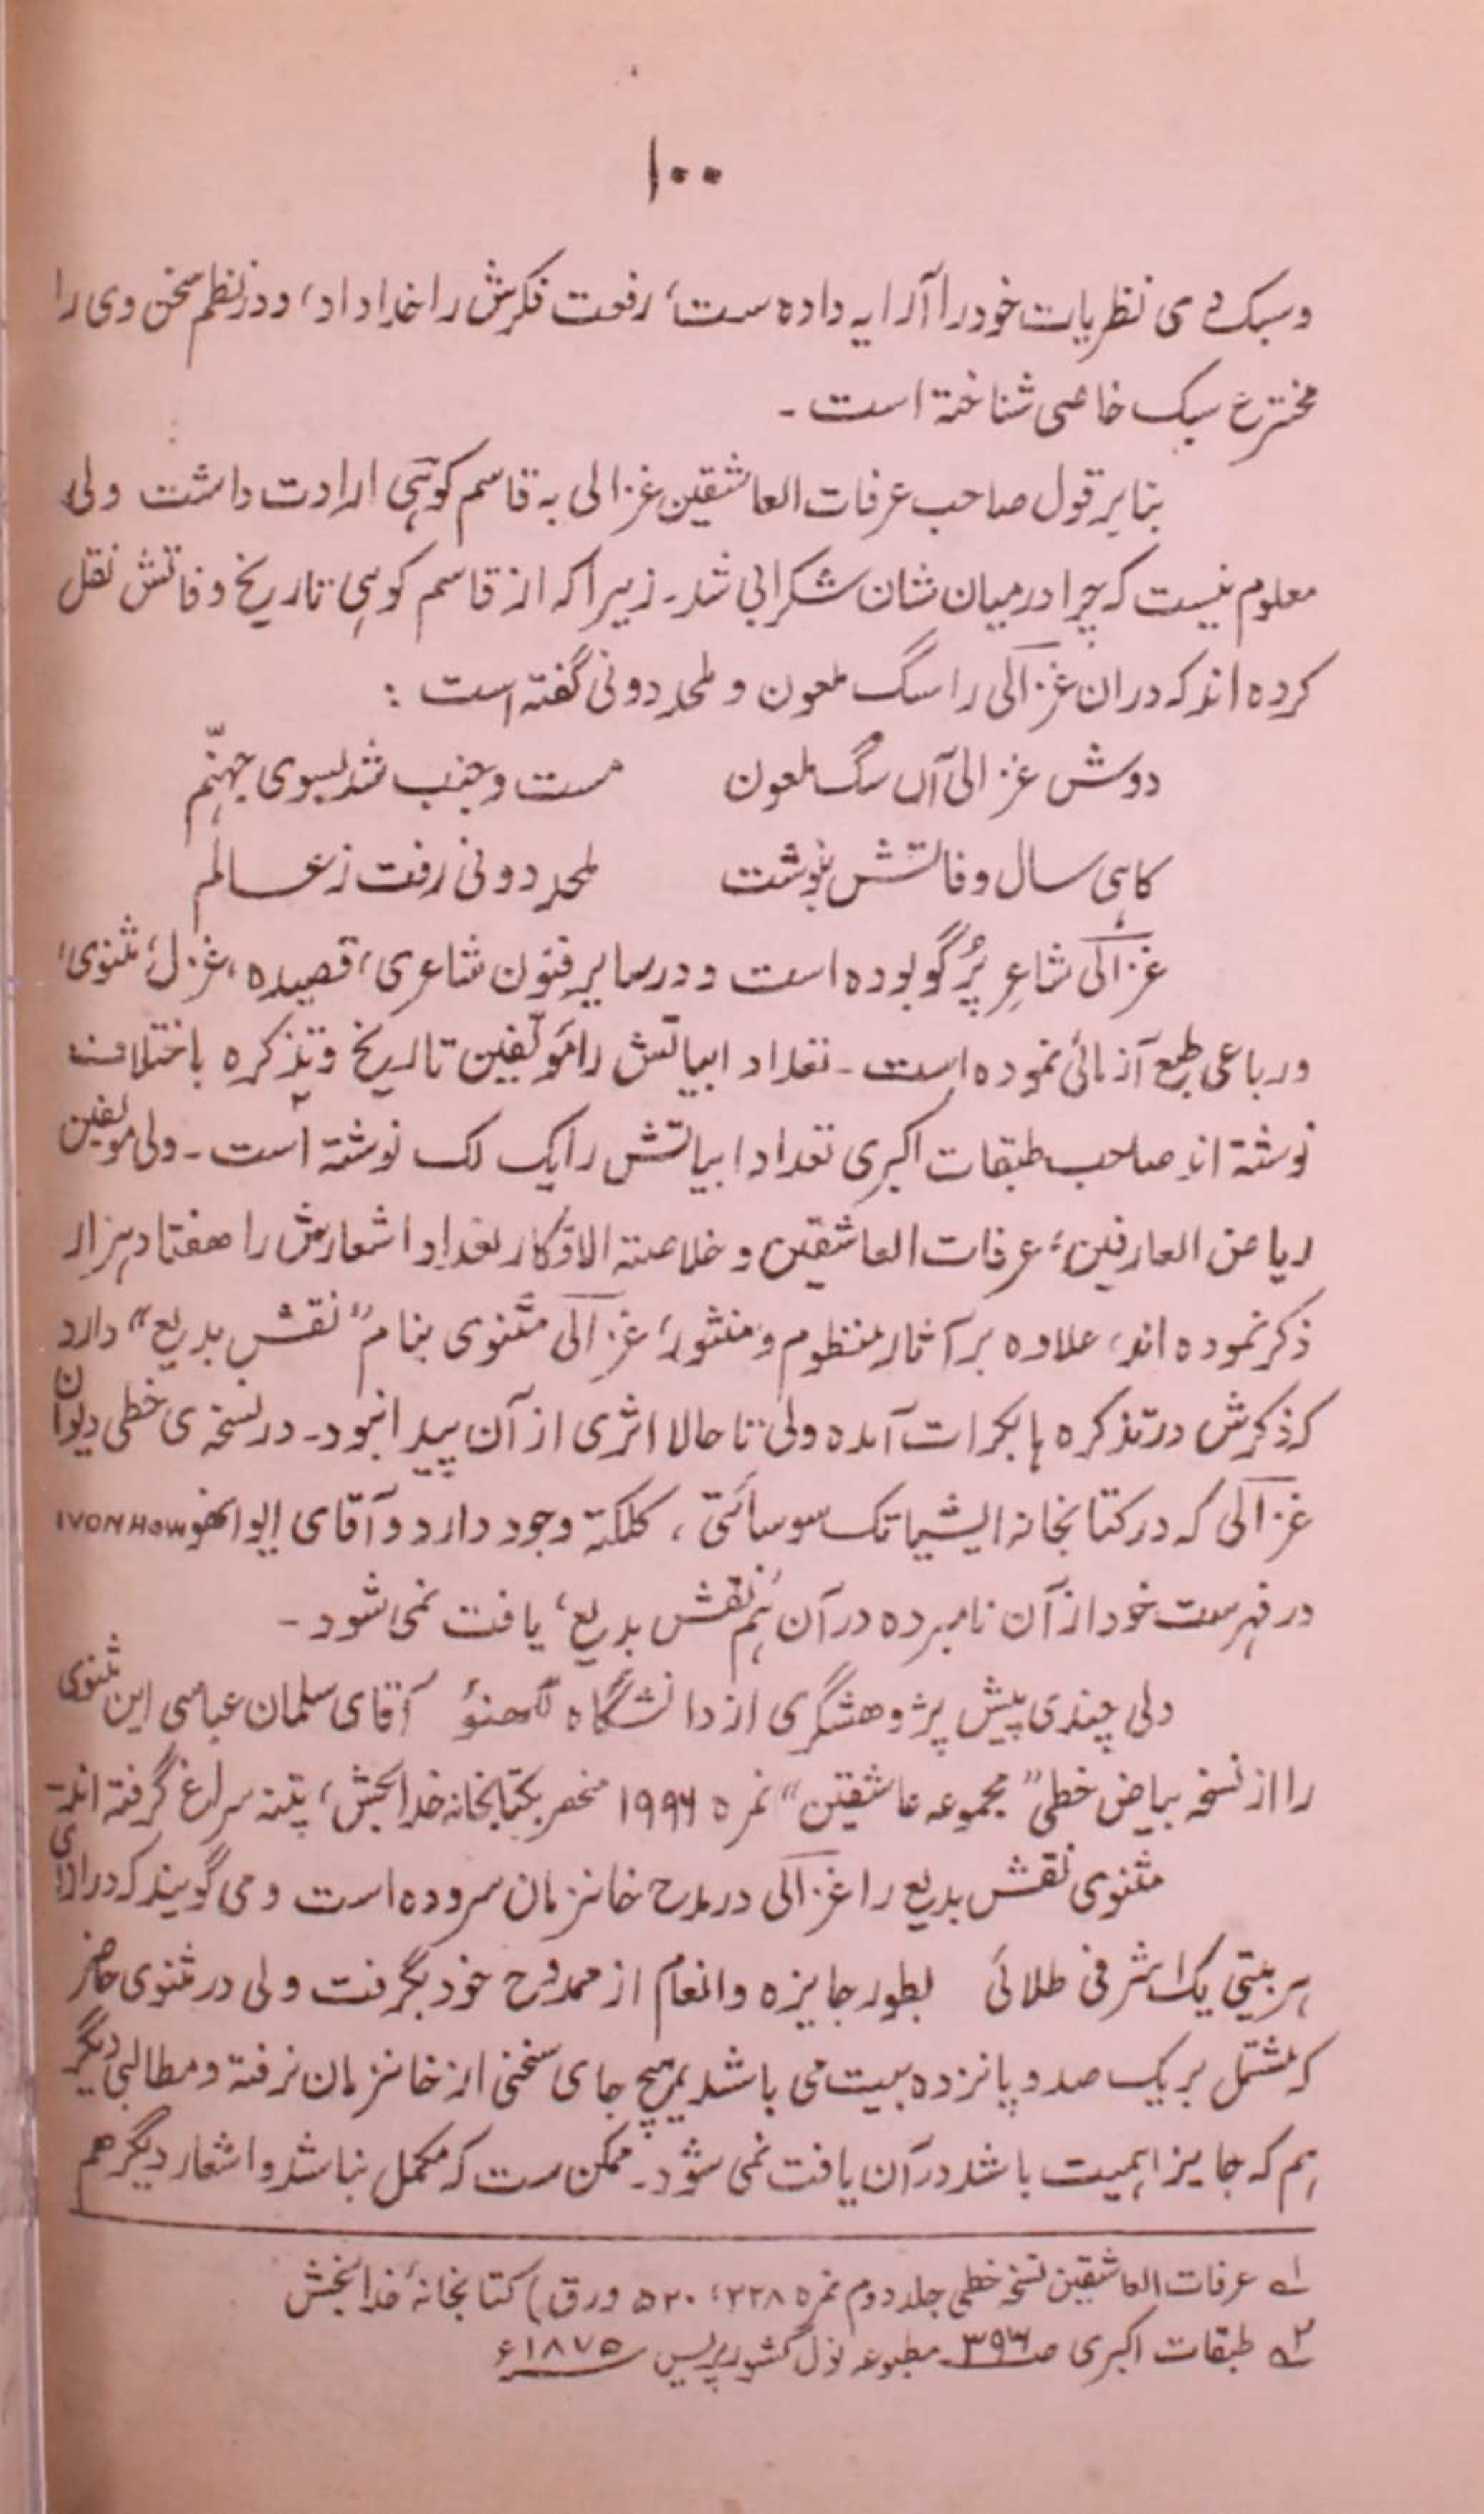 ۱۰۰
وسبک وی نظریات خود را آرایه داده ست، رفعت فکرش را خداداد، و در نظم سخن وی را
مخترع سبک خاصی شناخته است ۔
بنا بر قول صاحب عرفات العاشقین غزالی به قاسم کوہی ارادت داشت ولی
معلوم نیست که چرا درمیان شان شکرابی شد ۔ زیرا که از قاسم کوہی تاریخ وفاتش نقل
کرده اند که دران غزالی را سگ ملعون و ملحد دونی گفته است :
دوش غزالی آں سگ ملعون مست و جنب شد بسوی جهنّم
کاہی سال وفاتش بنوشت ملحد دونی رفت ز عالم
غزالی شاعرِ پُر گو بوده است و در سایر فنون شاعری، قصیده، غزل، مثنوی،
ورباعی طبع آزمائی نموده است ۔ تعداد ابیاتش را مؤلفین تاریخ و تذکره باختلاف
نوشته اند صاحب طبقات اکبری تعداد ابیاتش را یک لک نوشته است ۲ ۔ ولی مولفین
ریاض العارفین، عرفات العاشقین و خلاصته الافکار تعداد اشعارش را هفتاد ہزار
ذکر نموده اند، علاوه بر آثار منظوم و منثور، غزالی مثنوی بنام "نقش بدیع" دارد
که ذکرش در تذکره ہا بکرات آمده ولی تا حالا اثری از آن پیدا نبود ۔ در نسخه ی خطی دیوان
غزالی که در کتابخانه ایشیاتک سوسائتی، کلکته وجود دارد و آقای ایوانهو IVON HOW
در فہرست خود از آن نامبرده در آن ہم 'نقش بدیع' یافت نمی شود ۔
ولی چندی پیش پژوهشگری از دانشگاه لکھنؤ آقای سلمان عباسی این مثنوی
را از نسخه بیاض خطی "مجموعه عاشقین" نمره ۱۹۹۴ منحصر بکتابخانه خدابخش، پتنه سراغ گرفته اند۔
مثنوی نقش بدیع را غزالی در مدح خانزمان سروده است و می گویند که در ازای
ہر بیتی یک اشرفی طلائی بطور جایزه و انعام از ممدوح خود بگرفت ولی در مثنوی حاضر
که مشتمل بر یک صد و پانزده بیت می باشد ہیچ جای سخنی از خانزمان نرفته و مطالبی دیگر
ہم که جایز اہمیت باشد در آن یافت نمی شود ۔ ممکن ست که مکمل نباشد و اشعار دیگر هم
۱ے عرفات العاشقین نسخه خطی جلد دوم نمره ۲۲۸، ۵۲۰ ورق) کتابخانهٔ خدابخش
۲ے طبقات اکبری صـ۳۹۴ مطبوعه نول کشور پریس ۱۸۷۵ء